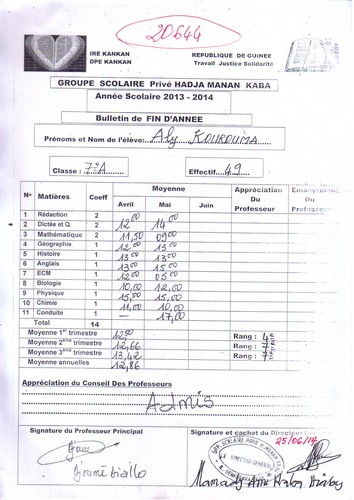 20644
IRE KANKAN
DPE KANKAN
REPUBLIQUE DE GUINEE
Travail Justice Solidarité
GROUPE SCOLAIRE Privé HADJA MANAN KABA
Année Scolaire 2013 - 2014
Bulletin de FIN D'ANNEE
Prénoms et Nom de l'élève: Aly KOUROUMA
Classe : 7ºA Effectif 49
N° Matières Coeff Moyenne Appréciation Du Professeur Emargement Du Profes.
Avril Mai Juin
1 Rédaction 2
2 Dictée et Q. 2 12,00 14,00
3 Mathématique 2 11,50 09,00
4 Géographie 1 12,00 13,00
5 Histoire 1 13,00 13,00
6 Anglais 1 13,00 15,00
7 ECM 1 12,00 05,00
8 Biologie 1 10,00 12,00
9 Physique 1 15,50 15,00
10 Chimie 1 11,00 10,00
11 Conduite 1 — 17,00
Total 14
Moyenne 1er trimestre Rang : 4
Moyenne 2ème trimestre 12,66 Rang :
Moyenne 3ème trimestre 13,42 Rang :
Moyenne annuelles 12,86
Appréciation du Conseil Des Professeurs
Admis
Signature du Professeur Principal
Signature et cachet du Directeur
25/06/14
DIRECTEUR GENERAL